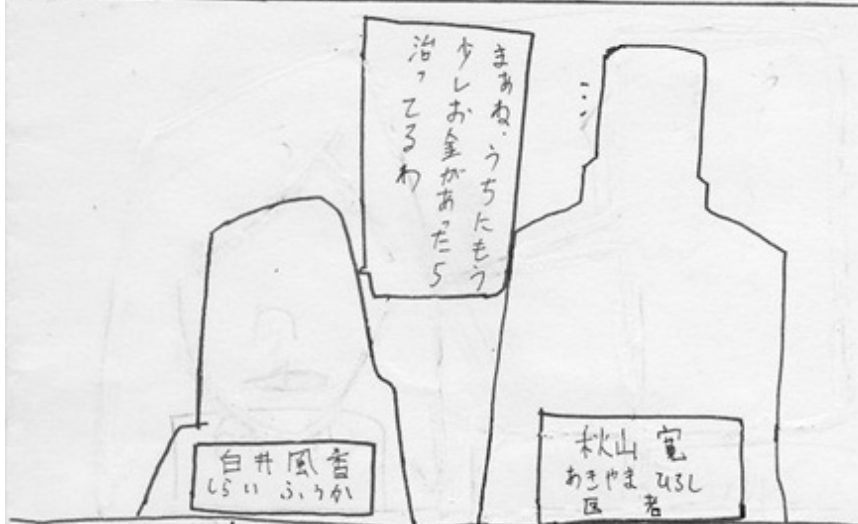 まぁね、うちにもう
少しお金があったら
治ってるわ
…
白井風香
しらい ふうか
秋山 寛
あきやま ひろし
医者